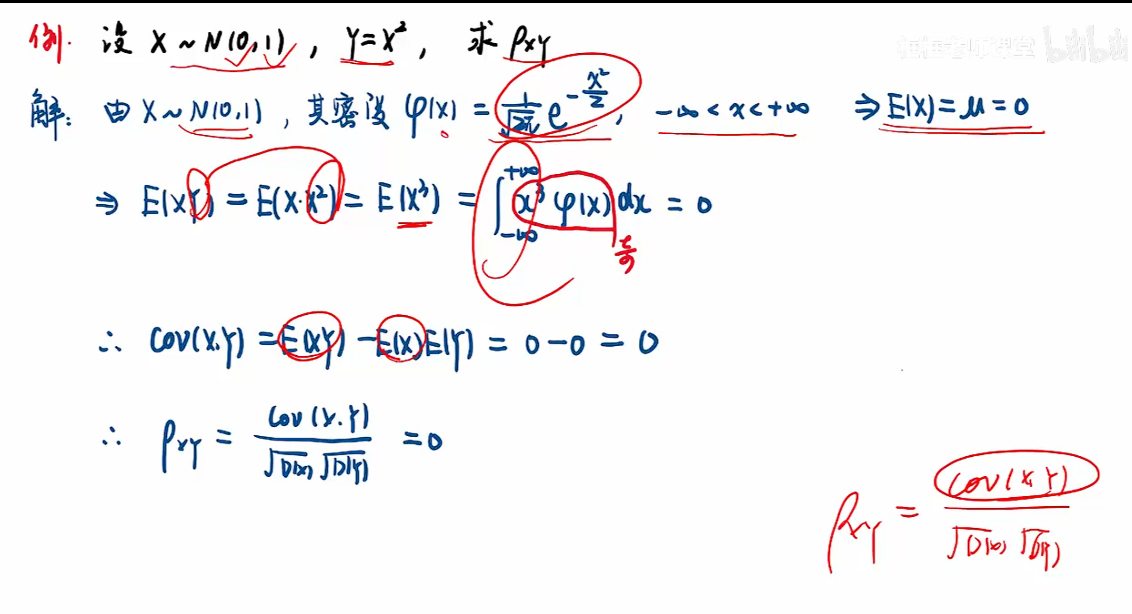 例. 设 X ~ N(0,1), Y=X², 求 ρXY
解: 由 X ~ N(0,1), 其密设 φ(x) = 1/√2π e^(-x²/2), -∞ < x < +∞ ⇒ E(X) = μ = 0
⇒ E(XY) = E(X·X²) = E(X³) = ∫_{-∞}^{+∞} x³ φ(x) dx = 0
奇
∴ Cov(X,Y) = E(XY) - E(X)E(Y) = 0-0 = 0
∴ ρXY = Cov(X,Y) / √D(X) √D(Y) = 0
ρXY = Cov(X,Y) / √D(X) √D(Y)
bilibili